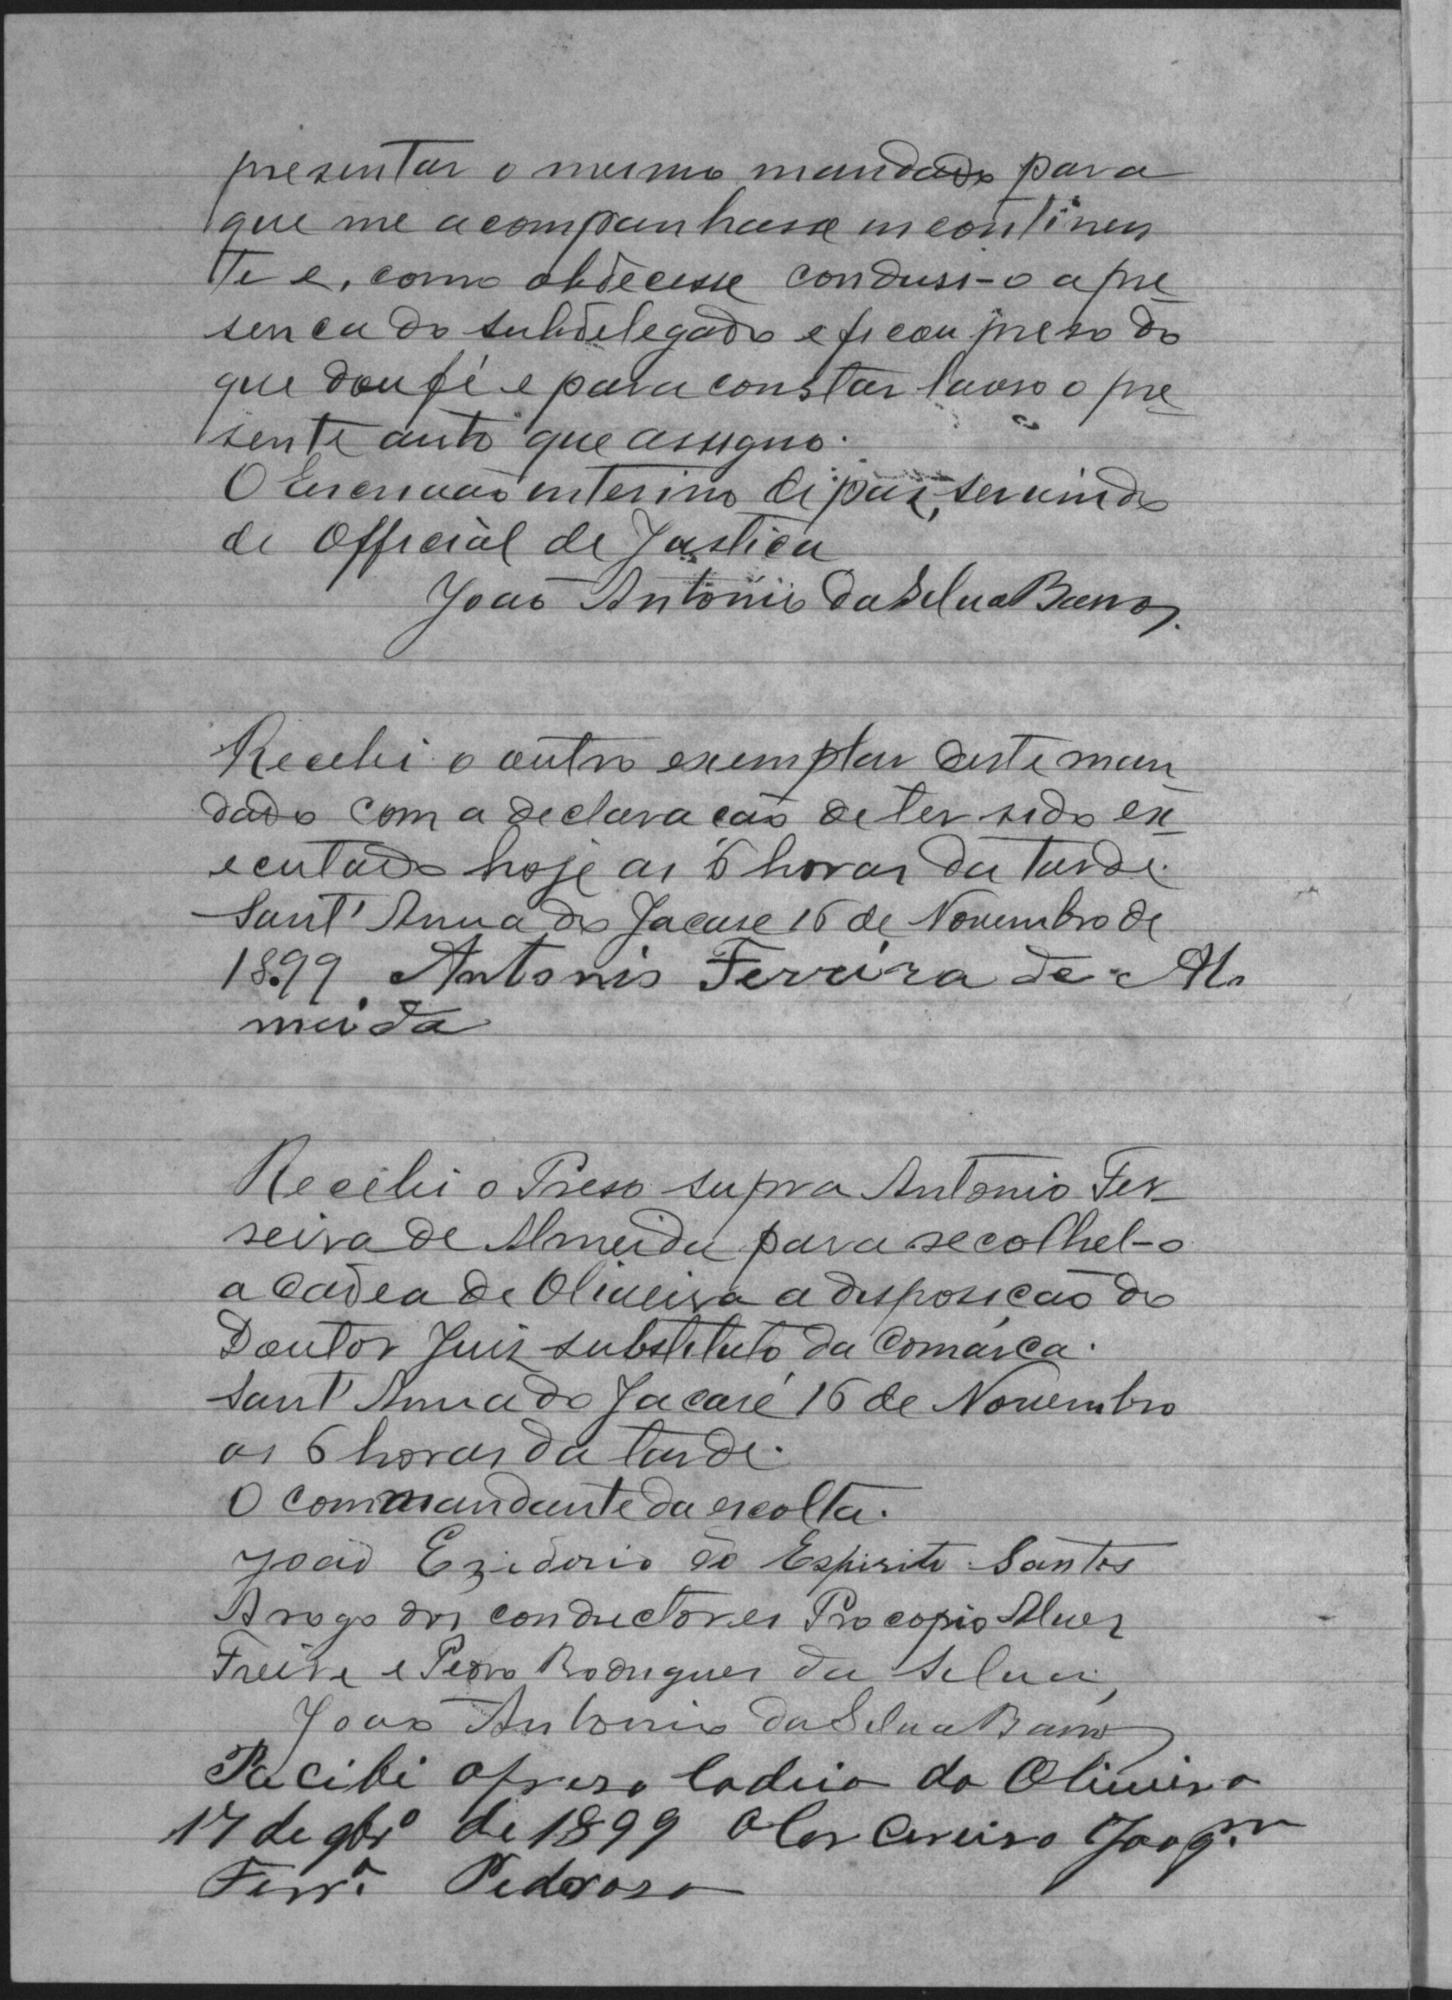 presentar o mesmo mandado para
que me acompanhasse incontinen
te e, como obdecesse condusi-o a pre
senca do subdelegado e ficou preso do
que dou fé e para constar lavro o pre
sente auto que assigno.
O Escrivão interino de paz, servindo
de Official de Justica
João Antonio da Silva Barros.
Recebi o outro exemplar deste man
dado com a declaracão de ter sido ex
ecutado hoje as 6 horas da tarde.
Sant'Anna do Jacare 16 de Novembro de
1899 Antonio Ferreira de Al
meida
Recebi o Preso supra Antonio Fer
reira de Almeida para recolhel-o
a cadea de Oliveira a disposicão do
Doutor Juiz substituto da Comarca.
Sant'Anna do Jacaré 16 de Novembro
as 6 horas da tarde.
O commandante da escolta.
João Ezidorio do Espirito Santos
Arogo dos conductores Procopio Alves
Freire e Pedro Rodrigues da Silva,
João Antonio da Silva Barros
Recibi o preso Cadeia da Oliveira
17 de 9brº de 1899 O Carcereiro Joaqm
Ferrª Pedroso